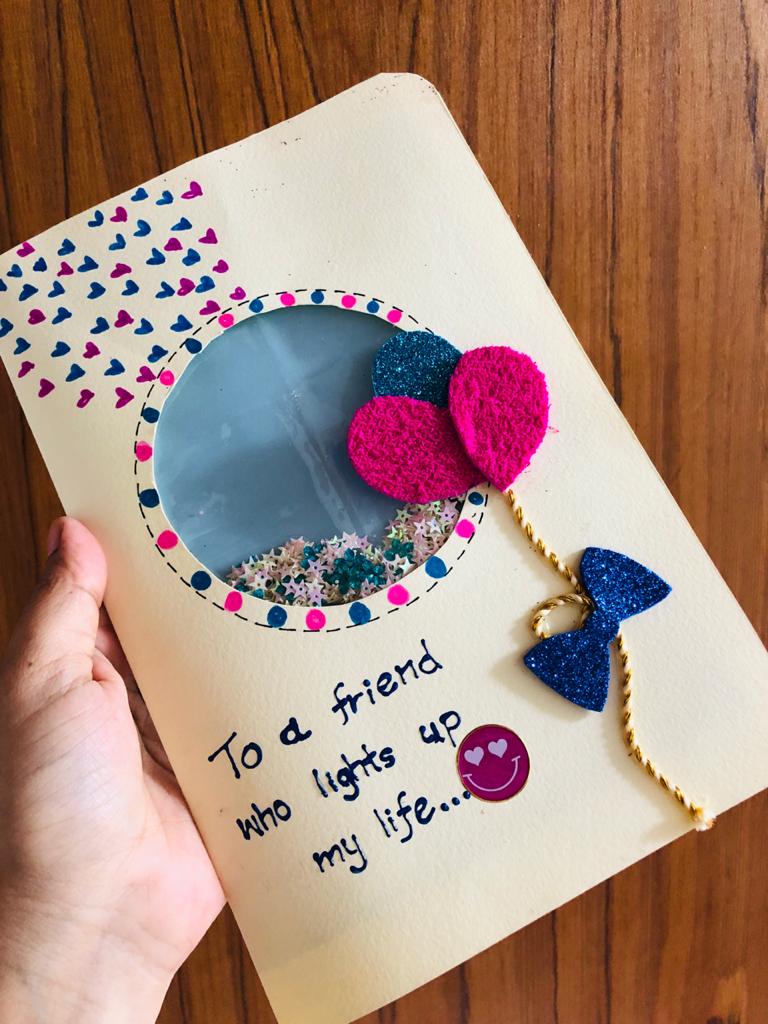 To a friend
who lights up
my life...